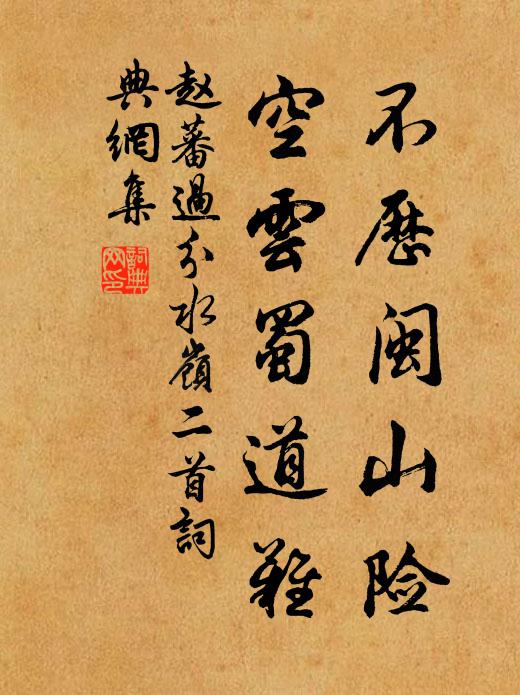 不歷闽山险
空雲蜀道難
趙蕃過分水嶺二首詞
典網集
詞典
网印